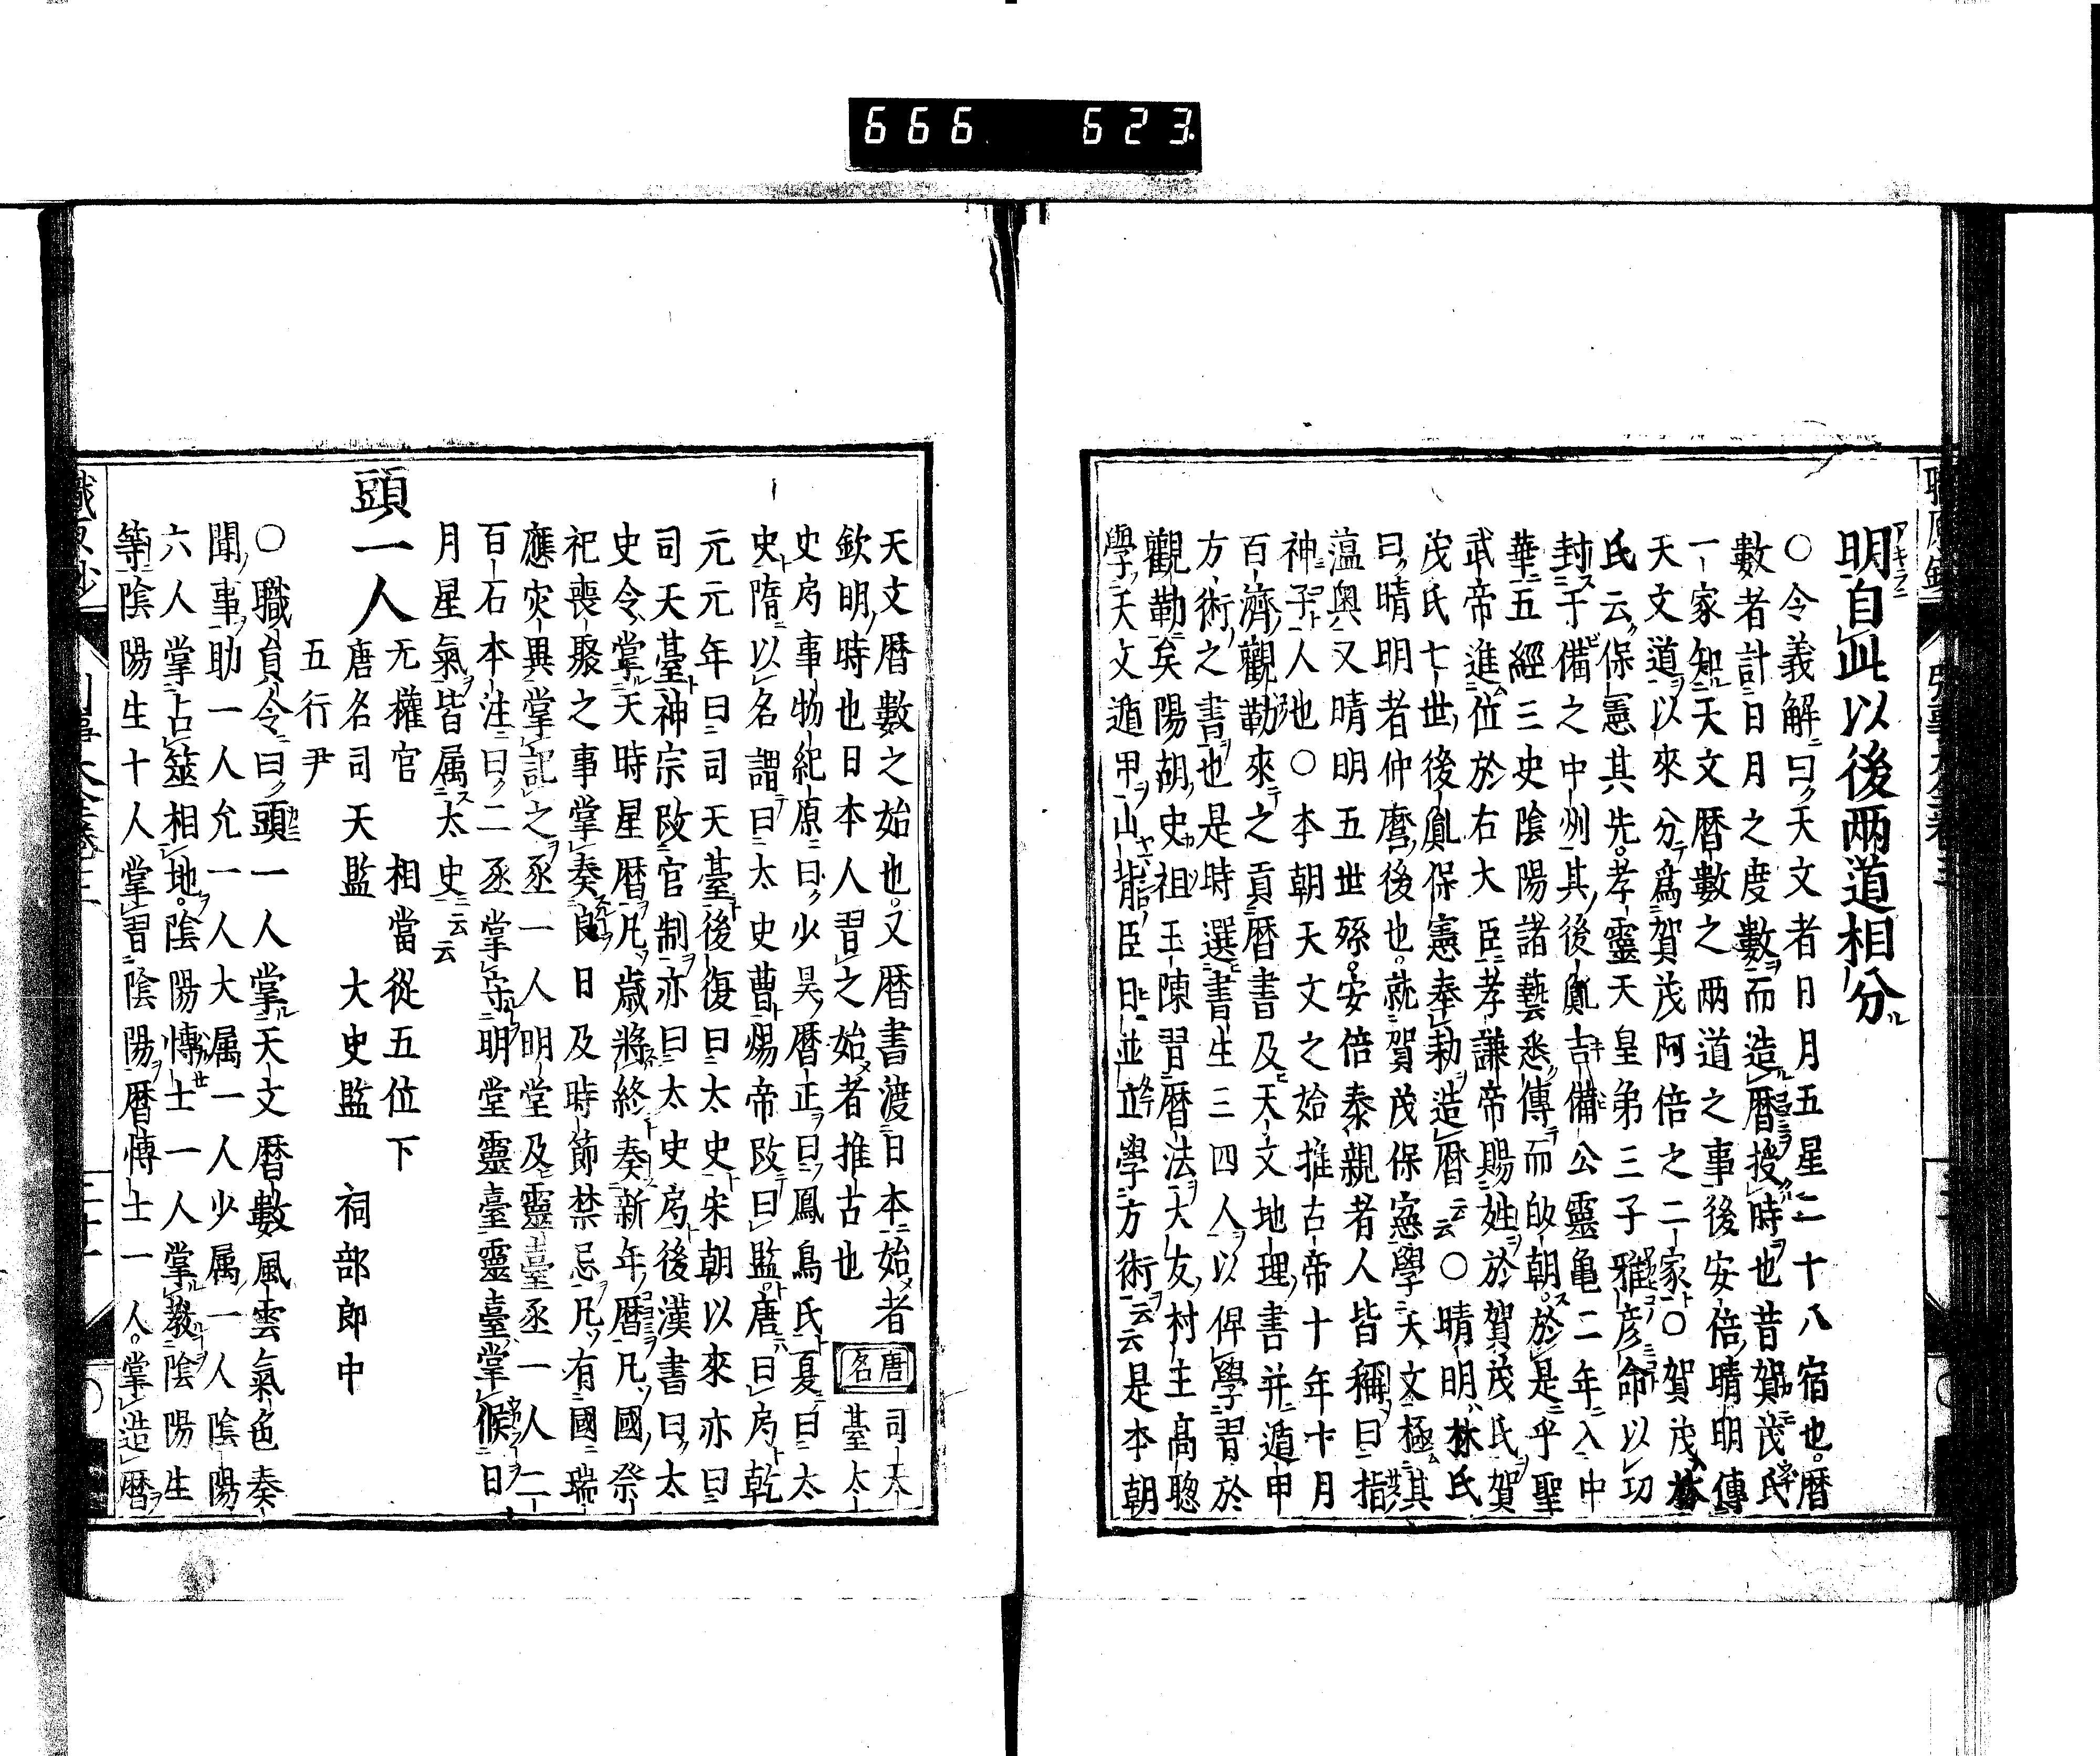 666 623
明自此以後兩道相分
○令義解曰天文者日月五星二十八宿也曆
數者計日月之度數而造曆授時也昔賀茂氏
一家知天文曆數之兩道之事後安倍晴明傳
天文道以來分爲賀茂阿倍之二家○賀茂
氏云保憲其先孝靈天皇弟三子雅彦命以功
封于備之中州其後胤吉備公靈亀二年入中
華五經三史陰陽諸藝悉傳而皈朝於是乎聖
武帝進位於右大臣孝謙帝賜姓於賀茂氏賀
茂氏七世後胤保憲奉勅造曆云云○晴明林氏
曰晴明者仲麿後也就賀茂保憲學天文極其
薀奥又晴明五世孫安倍泰親者人皆稱曰指
神子人也○本朝天文之始推古帝十年十月
百濟觀勒來之貢曆書及天文地理書并遁甲
方術之書也是時選書生三四人以俾學習於
觀勒矣陽胡史祖玉陳習曆法大友村主高聦
學天文遁甲山背臣日並立學方術云云是本朝
天文曆數之始也又曆書渡日本始者
欽明時也日本人習之始者推古也
唐名
司天臺太
史局事物紀原曰少昊曆正曰鳳鳥氏夏曰太
史隋以名謂曰太史曹煬帝改曰監唐曰局乾
元元年曰司天臺後復曰太史宋朝以來亦曰
司天臺神宗改官制亦曰太史局後漢書曰太
史令掌天時星曆凡歳將終奏新年曆凡國祭
祀喪聚之事掌奏良日及時節禁忌凡有國瑞
應灾異掌記之丞一人明堂及靈臺丞一人二
百石本注曰二丞掌守明堂靈臺靈臺掌候日
月星氣皆属太史云云
頭一人 无權官 相當從五位下
唐名司天監 大史監 祠部郎中
五行尹
○職員令曰頭一人掌天文曆數風雲氣色奏
聞事助一人允一人大属一人少属一人陰陽
六人掌占筮相地陰陽博士一人掌教陰陽生
等陰陽生十人掌習陰陽曆博士一人掌造曆